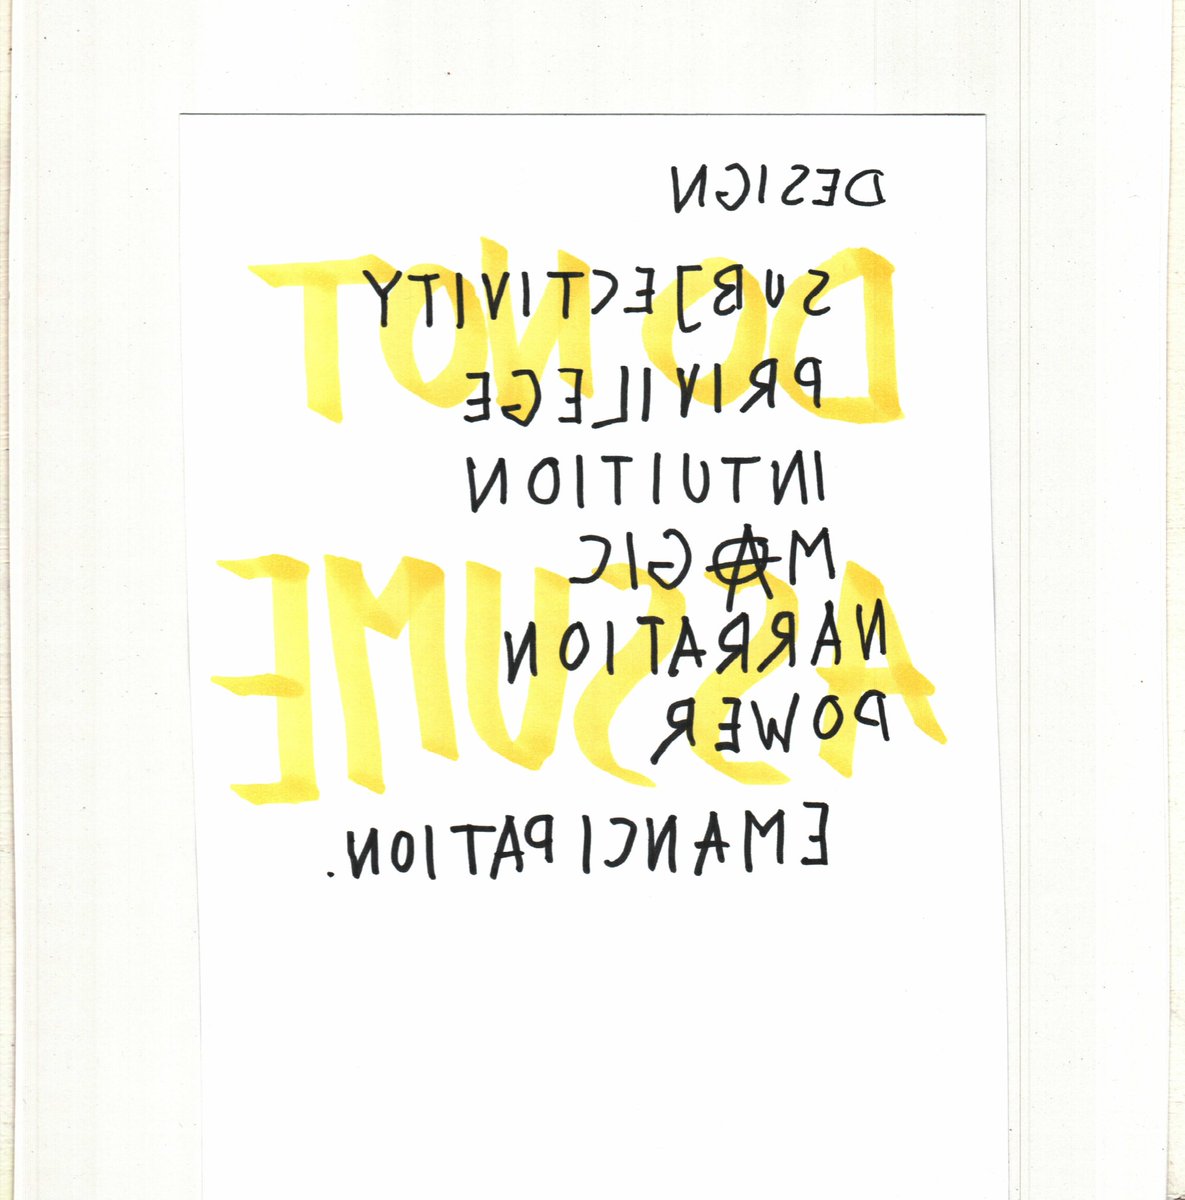 DESIGN
DO NOT
SUBJECTIVITY
PRIVILEGE
INTUITION
MAGIC
ASSUME
NARRATION
POWER
EMANCIPATION.